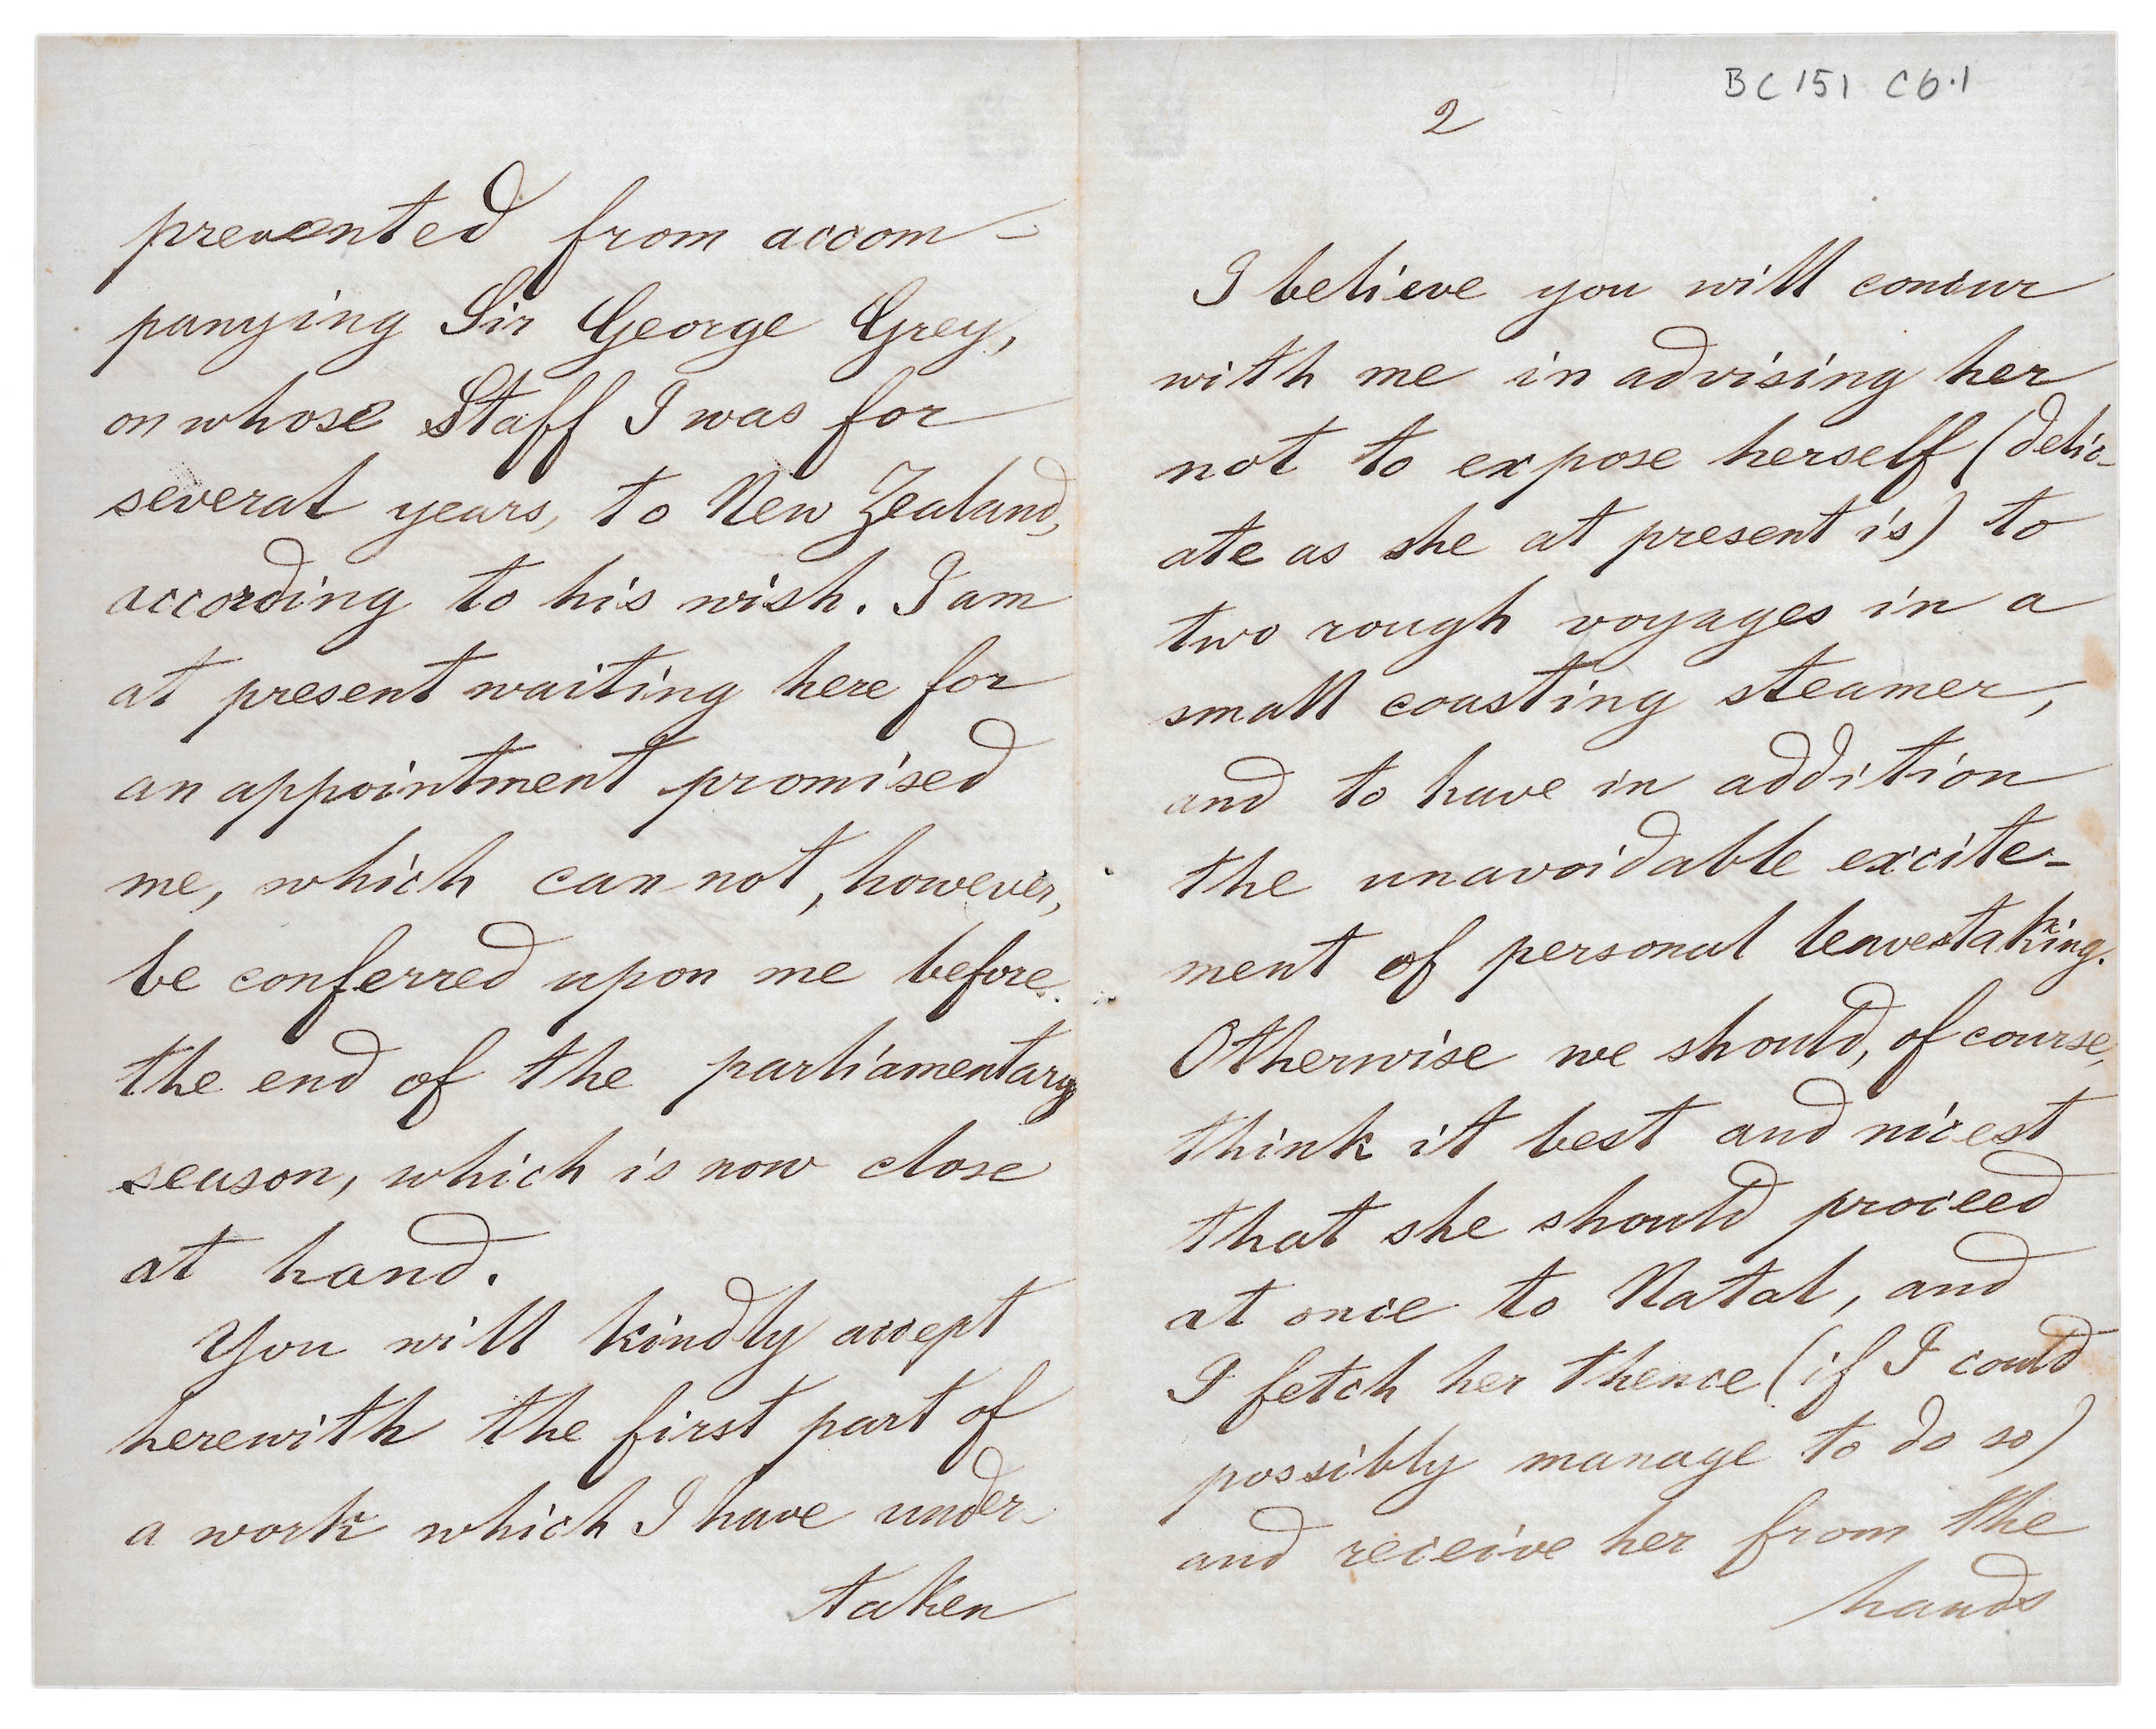 prevented from accom-
panying Sir George Grey,
on whose Staff I was for
several years, to New Zealand,
according to his wish. I am
at present waiting here for
an appointment promised
me, which can not, however,
be conferred upon me before
the end of the parliamentary
season, which is now close
at hand.
You will kindly accept
herewith the first part of
a work which I have under-
taken
BC 151 C6.1
2
I believe you will concur
with me in advising her
not to expose herself (delic-
ate as she at present is) to
two rough voyages in a
small coasting steamer,
and to have in addition
the unavoidable excite-
ment of personal leavestaking.
Otherwise we should, of course,
think it best and nicest
that she should proceed
at once to Natal, and
I fetch her thence (if I could
possibly manage to do so)
and receive her from the
hands